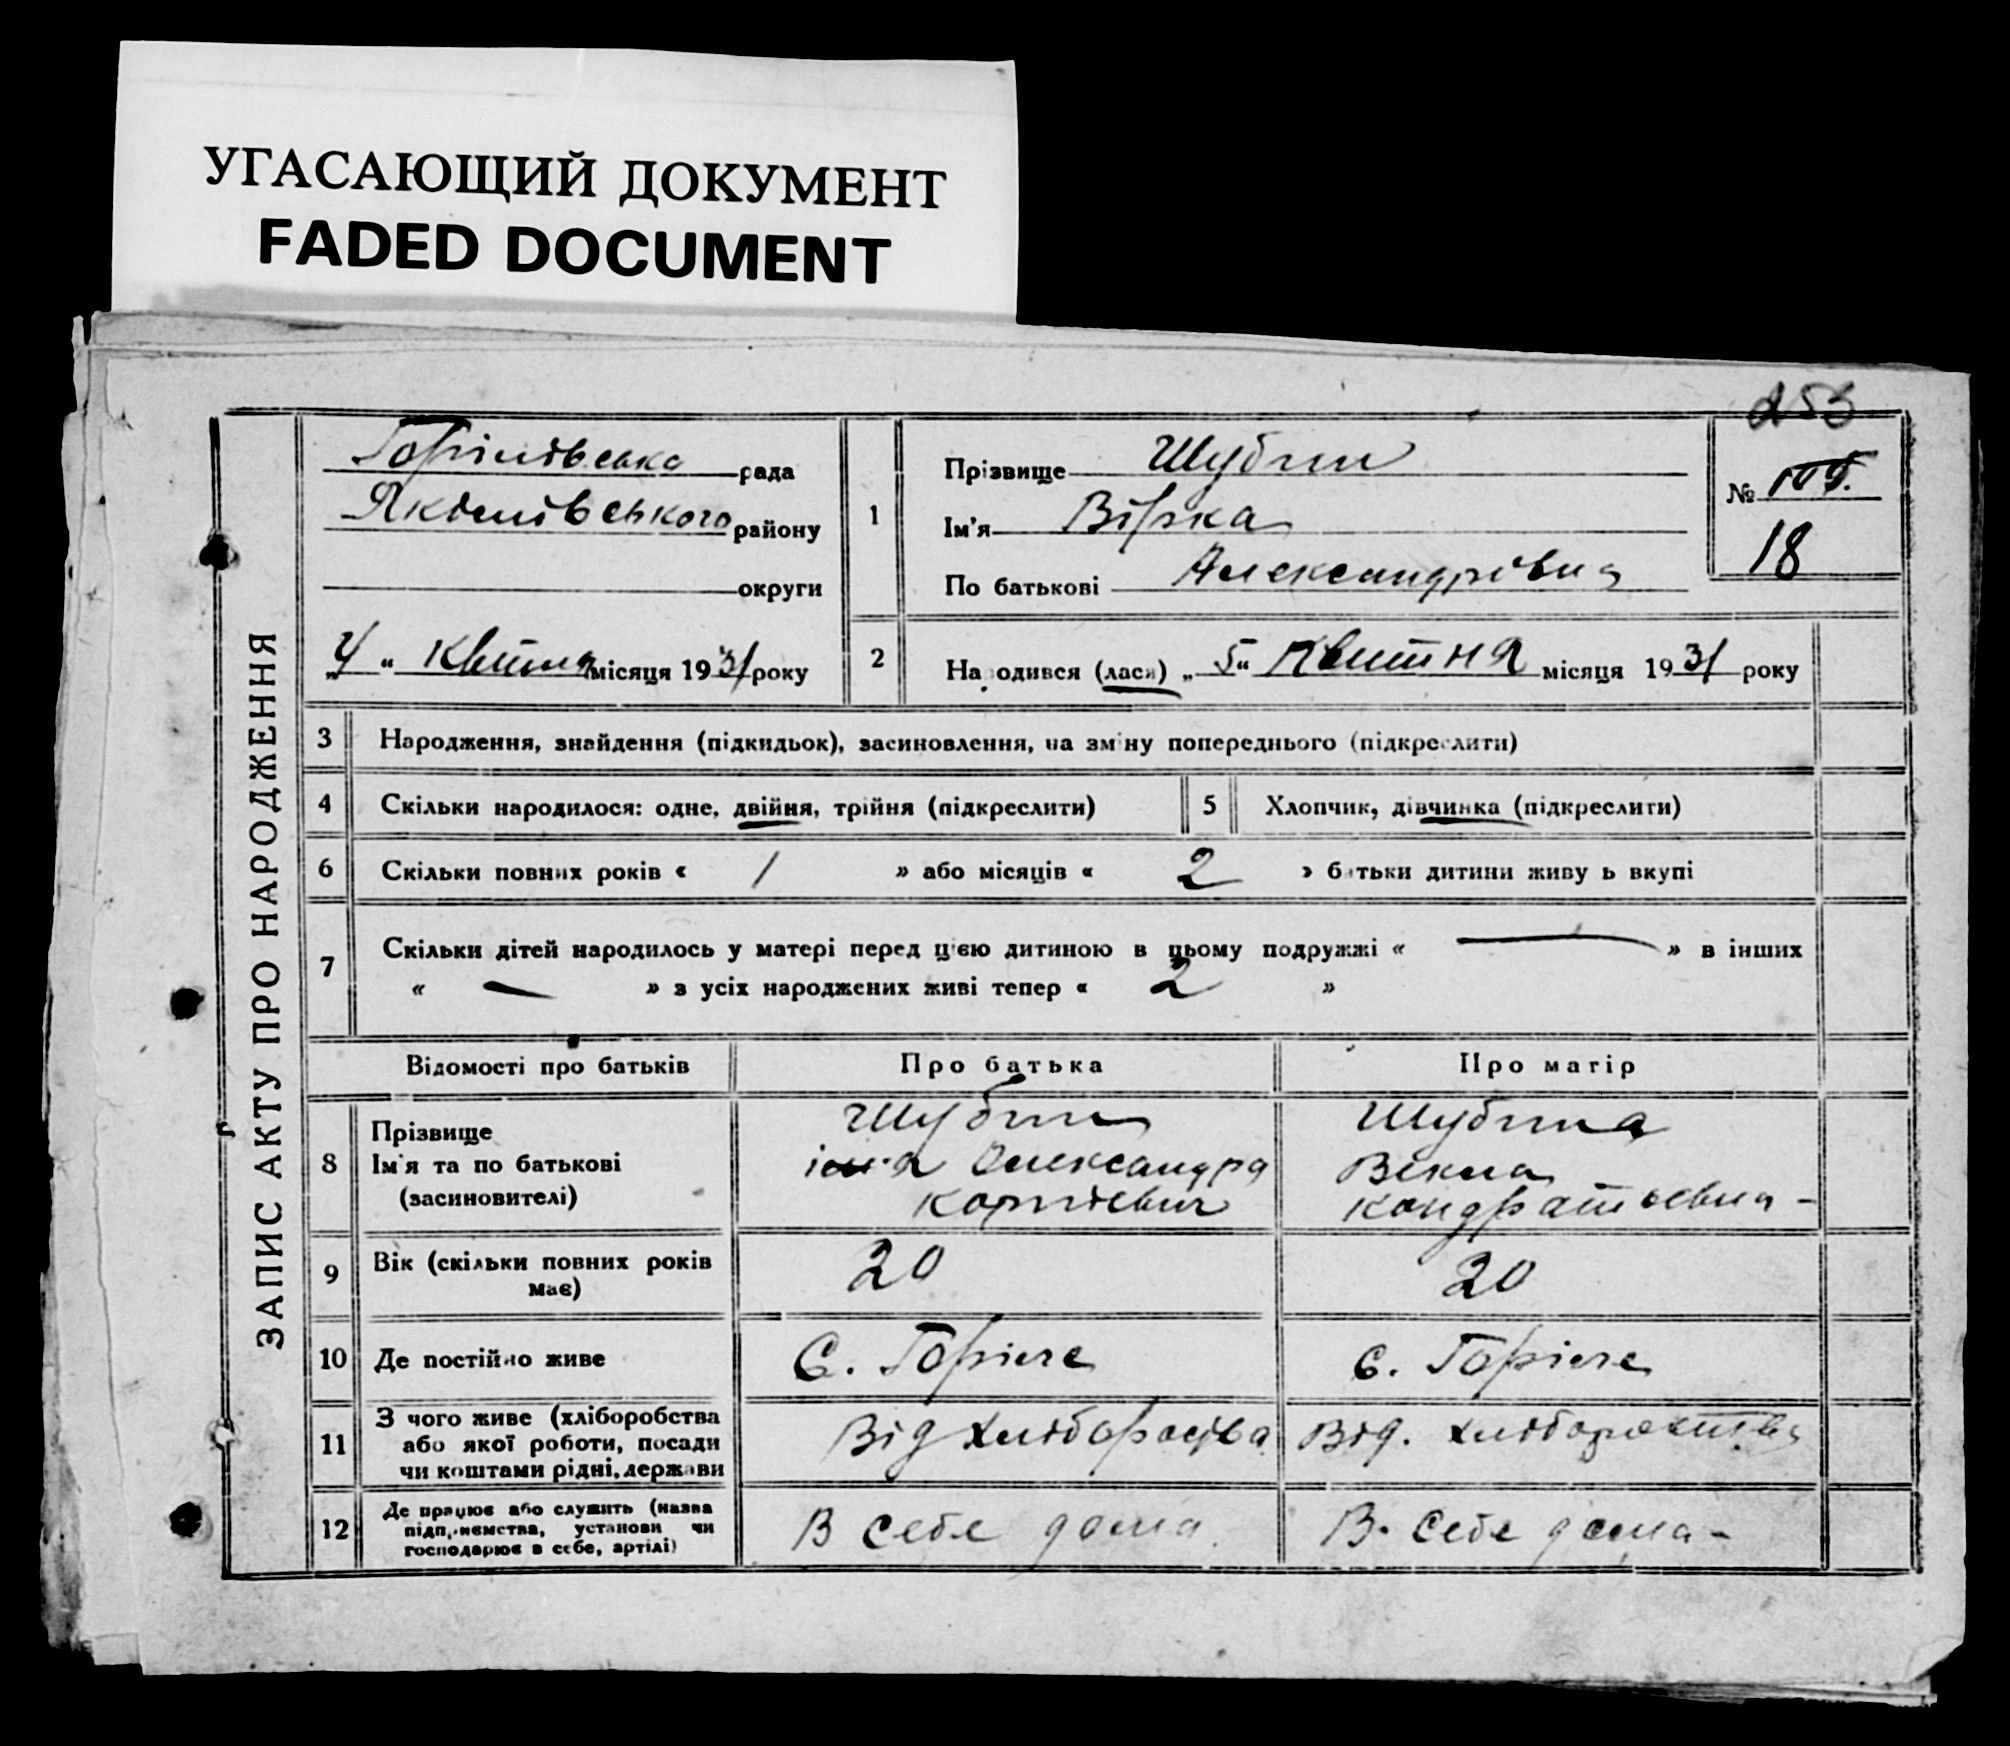 УГАСАЮЩИЙ ДОКУМЕНТ
FADED DOCUMENT
253
ЗАПИС АКТУ ПРО НАРОДЖЕННЯ
Горілівська рада
Якімівського району
округи
„ “ Квітня місяця 1931 року
1
Прізвище Шубин
Ім'я Вірка
По батькові Александрівна
№
18
2
Народився (лася) „5“ Квитня місяця 1931 року
3 Народження, знайдення (підкидьок), засиновлення, на зміну попереднього (підкреслити)
4 Скільки народилося: одне, двійня, трійня (підкреслити)
5 Хлопчик, дівчинка (підкреслити)
6 Скільки повних років « 1 » або місяців « 2 » батьки дитини живуть вкупі
7 Скільки дітей народилось у матері перед цією дитиною в цьому подружжі « — » в інших
« — » з усіх народжених живі тепер « 2 »
Відомості про батьків Про батька Про матір
8 Прізвище
Ім'я та по батькові
(засиновителі)
Шубин
Олександра
Корнієвич
Шубина
Векла
Кондратьевна -
9 Вік (скільки повних років
має)
20
20
10 Де постійно живе
С. Горіле
с. Горіле
11 З чого живе (хліборобства
або якої роботи, посади
чи коштами рідні, держави
Від
Від.
12 Де працює або служить (назва
підприємства, установи чи
господарює в себе, артілі)
В себе дома
В. Себе дома -